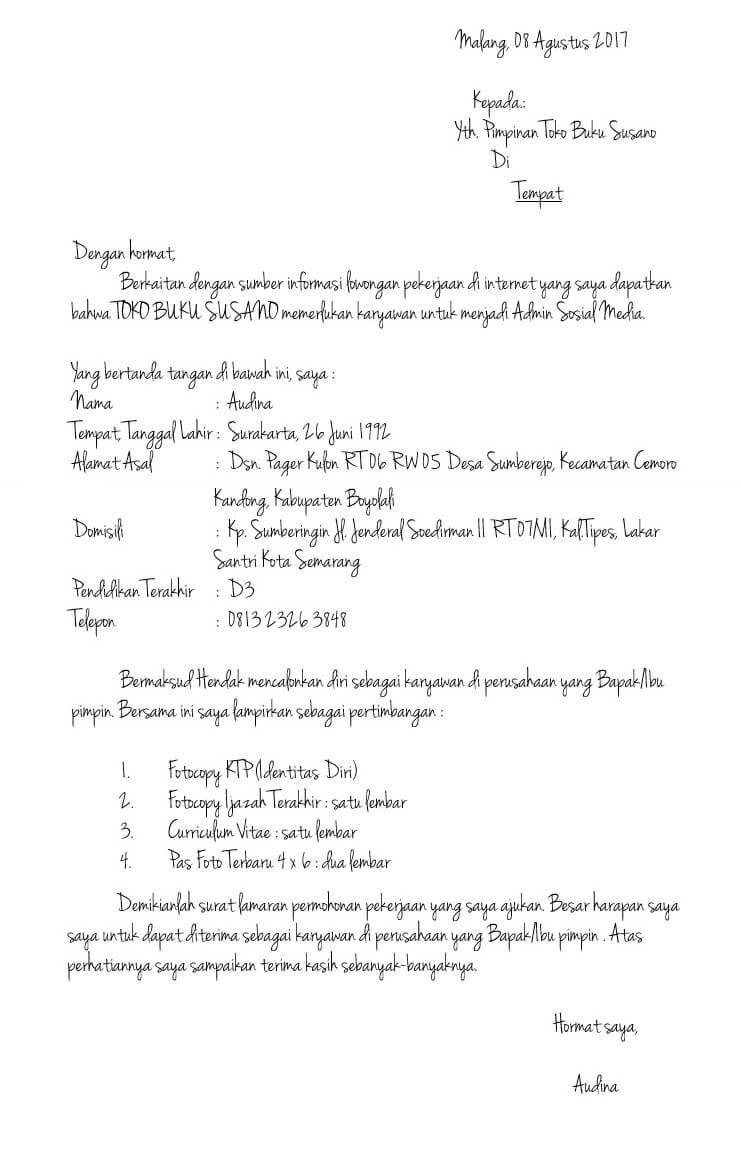 Malang, 08 Agustus 2017
Kepada.:
Yth. Pimpinan Toko Buku Susano
Di
Tempat
Dengan hormat,
Berkaitan dengan sumber informasi lowongan pekerjaan di internet yang saya dapatkan
bahwa TOKO BUKU SUSANO memerlukan karyawan untuk menjadi Admin Sosial Media.
Yang bertanda tangan di bawah ini, saya :
Nama : Audina
Tempat, Tanggal Lahir : Surakarta, 26 Juni 1992
Alamat Asal : Dsn. Pager Kulon RT 06 RW 05 Desa Sumberejo, Kecamatan Cemoro
Kandong, Kabupaten Boyolali
Domisili : Kp. Sumberingin Jl. Jenderal Soedirman II RT 07/VII, Kal.Tipes, Lakar
Santri Kota Semarang
Pendidikan Terakhir : D3
Telepon : 0813 2326 3848
Bermaksud Hendak mencalonkan diri sebagai karyawan di perusahaan yang Bapak/Ibu
pimpin. Bersama ini saya lampirkan sebagai pertimbangan :
1. Fotocopy KTP (Identitas Diri)
2. Fotocopy Ijazah Terakhir : satu lembar
3. Curriculum Vitae : satu lembar
4. Pas Foto Terbaru 4 x 6 : dua lembar
Demikianlah surat lamaran permohonan pekerjaan yang saya ajukan. Besar harapan saya
saya untuk dapat diterima sebagai karyawan di perusahaan yang Bapak/Ibu pimpin . Atas
perhatiannya saya sampaikan terima kasih sebanyak-banyaknya.
Hormat saya,
Audina